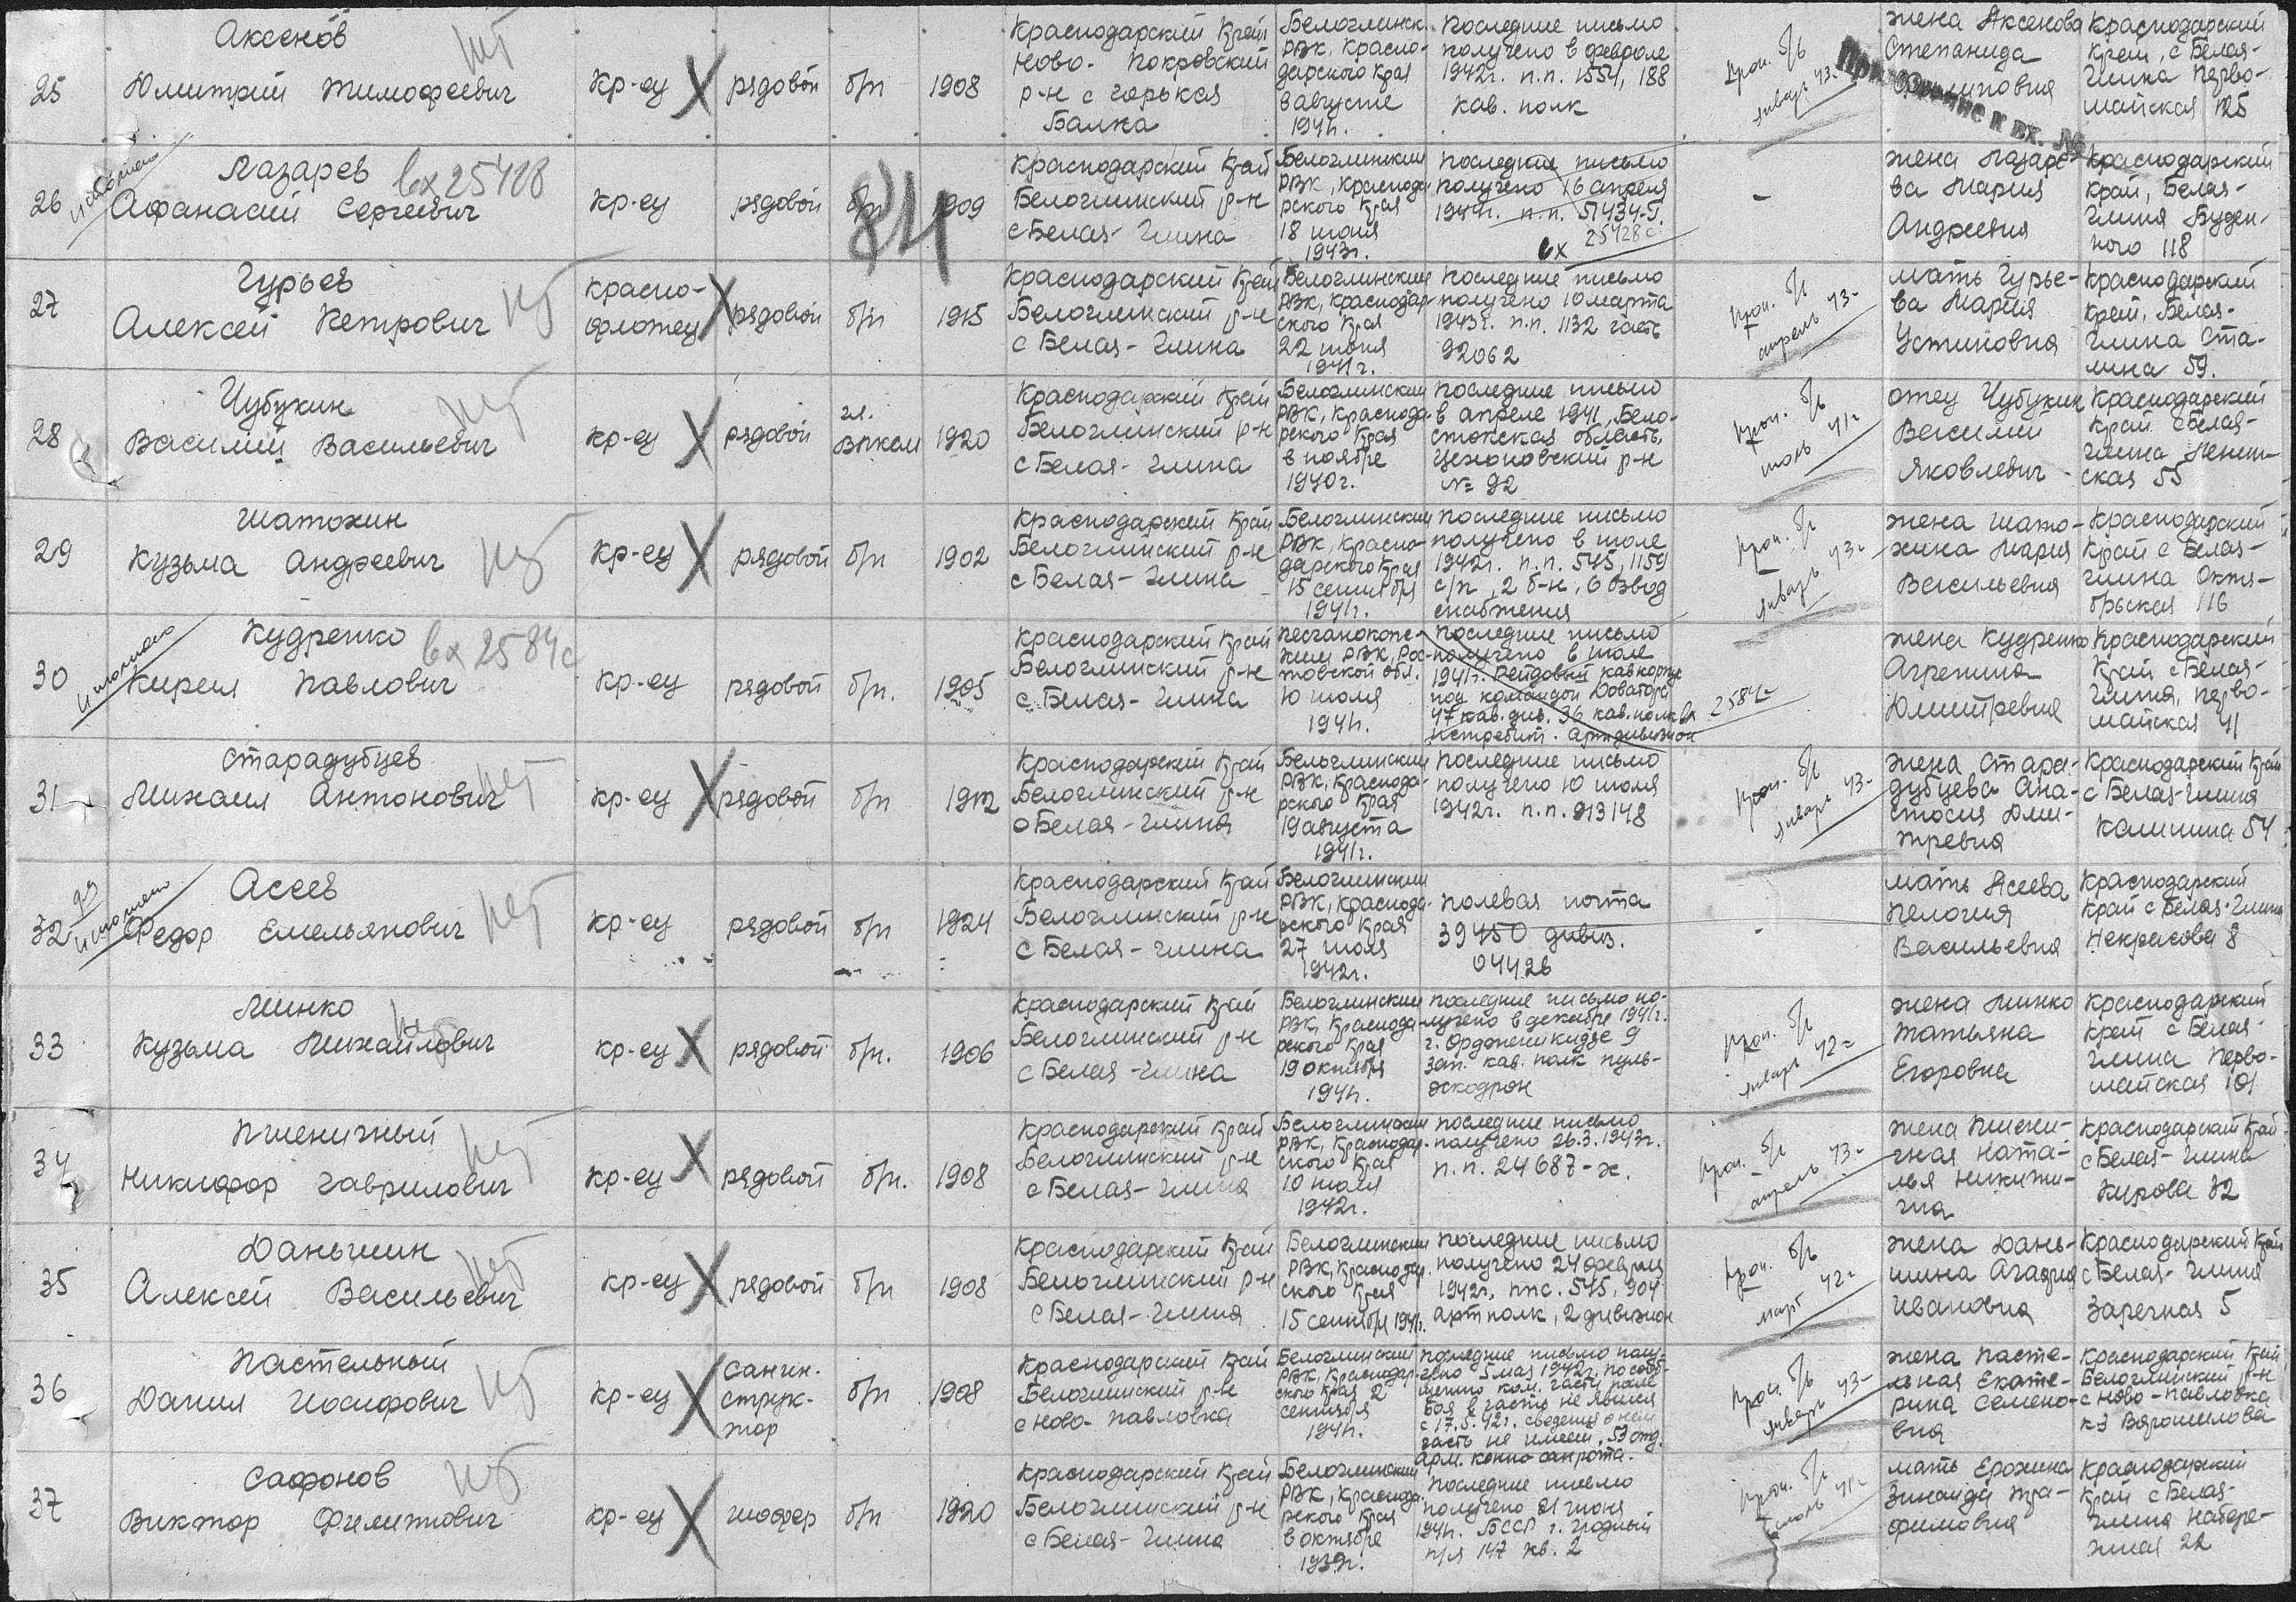 25
Аксенов
Дмитрий Тимофеевич
нет
кр-ец
рядовой
б/п
1908
Краснодарский Край
Ново-Покровский
р-н с Горькая
Балка
Белоглинск.
РВК, Красно-
дарского края
в августе
1941г.
Последние письмо
получено в феврале
1942г. п.п. 1554, 188
кав. полк
проп. б/в
январь 43-
жена Аксенова
Степанида
Краснодарский
Край, с Белая-
Глина Перво-
майская 125
Приложение к вх. №
26
Лазарев
Афанасий Сергеевич
вх 25428
кр-ец
рядовой
б/п
84
1909
Краснодарский Край
Белоглинский р-н
с Белая-Глина
Белоглинский
РВК, Краснода-
рского Края
18 июня
1943г.
Последние письмо
получено 16 апреля
1944г. п.п. 51434-Т.
вх 25428с
-
жена Лазаре-
ва Мария
Андреевна
Краснодарский
край, Белая-
Глина Буден-
ного 118
27
Гурьев
Алексей Петрович
нет
красно-
флотец
рядовой
б/п
1915
Краснодарский Край
Белоглинский р-н
с Белая-Глина
Белоглинский
РВК, Краснодар-
ского Края
22 июня
1941г.
Последние письмо
получено 10 марта
1943г. п.п. 1132 часть
92062
проп. б/в
апрель 43-
мать Гурье-
ва Мария
Устиновна
Краснодарский
Край, Белая-
Глина Ста-
лина 59.
28
Чубукин
Василий Васильевич
нет
кр-ец
рядовой
чл.
ВЛКСМ
1920
Краснодарский Край
Белоглинский р-н
с Белая-Глина
Белоглинский
РВК, Краснода-
рского Края
в ноябре
1940г.
Последние письмо
в апреле 1941, Бело-
стокская область,
Цехоновский р-н
№ 92
проп. б/в
июль 41г
отец Чубукин
Василий
Яковлевич
Краснодарский
Край с Белая-
Глина Ленин-
ская 55
29
Шатохин
Кузьма Андреевич
нет
кр-ец
рядовой
б/п
1902
Краснодарский Край
Белоглинский р-н
с Белая-Глина
Белоглинский
РВК, Красно-
дарского Края
15 сентября
1941г.
Последние письмо
получено в июле
1942г. п.п. 545, 1159
с/п, 2 б-н, 6 взвод
снабжения
проп. б/в
январь 43-
жена Шато-
хина Мария
Васильевна
Краснодарский
Край с Белая-
Глина Октя-
брьская 116
30
Кудренко
Кирей Павлович
вх 2584с
кр-ец
рядовой
б/п.
1905
Краснодарский Край
Белоглинский р-н
с Белая-Глина
Песчанокопс-
ким РВК, Рос-
товской обл.
10 июля
1941г.
Последние письмо
получено в июле
1941г. Рейдовый кавкорпус
под командой Доватора
47 кав. див. 36 кав. полк вх 2584-
Истребит. Артдивизион
жена Кудренко
Агрепина
Дмитревна
Краснодарский
Край с Белая-
Глина, Перво-
майская 41
31
Старадубцев
Михаил Антонович
нет
кр-ец
рядовой
б/п
1912
Краснодарский Край
Белоглинский р-н
с Белая-Глина
Белоглинский
РВК, Краснода-
рского Края
19 августа
1941г.
Последние письмо
получено 10 июля
1942г. п.п. 913148
проп. б/в
январь 43-
жена Стара-
дубцева Ана-
стасия Дми-
тревна
Краснодарский Край
с Белая-Глина
Калинина 54
32
Асеев
Федор Емельянович
нет
кр-ец
рядовой
б/п
1924
Краснодарский Край
Белоглинский р-н
с Белая-Глина
Белоглинский
РВК, Краснода-
рского Края
27 июля
1942г.
полевая почта
39450 дивиз.
04426
-
мать Асеева
Пелогия
Васильевна
Краснодарский
Край с Белая-Глина
Некрасова 8
33
Минко
Кузьма Михайлович
нет
кр-ец
рядовой
б/п.
1906
Краснодарский Край
Белоглинский р-н
с Белая-Глина
Белоглинский
РВК, Краснода-
рского Края
19 октября
1941г.
последние письмо по-
лучено в декабре 1941г.
г. Орджоникидзе 9
зап. кав. полк пуль-
эскадрон
проп. б/в
январь 42-
жена Минко
Татьяна
Егоровна
Краснодарский
Край с Белая-
Глина Перво-
майская 101
34
Пшеничный
Никифор Гаврилович
нет
кр-ец
рядовой
б/п.
1908
Краснодарский Край
Белоглинский р-н
с Белая-Глина
Белоглинский
РВК, Краснодар-
ского Края
10 июля
1942г.
последние письмо
получено 26.3.1943г.
п.п. 24687-ж.
проп. б/в
апрель 43-
жена Пшени-
чная Ната-
лья Никити-
чна
Краснодарский Край
с Белая-Глина
Кирова 32
35
Даньшин
Алексей Васильевич
нет
кр-ец
рядовой
б/п
1908
Краснодарский Край
Белоглинский р-н
с Белая-Глина
Белоглинский
РВК, Краснодар-
ского Края
15 сентября 1941г.
последние письмо
получено 24 февраля
1942г, ппс. 545, 904
арт полк, 2 дивизион
проп. б/в
март 42-
жена Дань-
шина Агафия
Ивановна
Краснодарский Край
с Белая-Глина
Заречная 5
36
Пастельный
Данил Иосифович
нет
кр-ец
санин-
струк-
тор
б/п
1908
Краснодарский Край
Белоглинский р-н
с Ново-Павловка
Белоглинский
РВК, Краснодар-
ского Края 2
сентября
1941г.
последние письмо полу-
чено 5 мая 1942г. по сооб-
щению ком. части после
боя в часть не явился
с 17.5.42г. сведения о нем
часть не имеет. 53 отд.
арм. конно санрота.
проп. б/в
январь 43-
жена Пасте-
льная Екате-
рина Семено-
вна
Краснодарский Край
Белоглинский р-н
с Ново-Павловка
к-з Ворошилова
37
Сафонов
Виктор Филиппович
нет
кр-ец
шофер
б/п
1920
Краснодарский Край
Белоглинский р-н
с Белая-Глина
Белоглинский
РВК, Краснода-
рского Края
в октябре
1939г.
Последние письмо
получено 21 июня
1941г. БССР г. Гродный
п/я 147 кв. 2
проп. б/в
июль 41-
мать Ерохина
Зинаида Тра-
фимовна
Краснодарский
Край с Белая-
Глина Набере-
жная 22